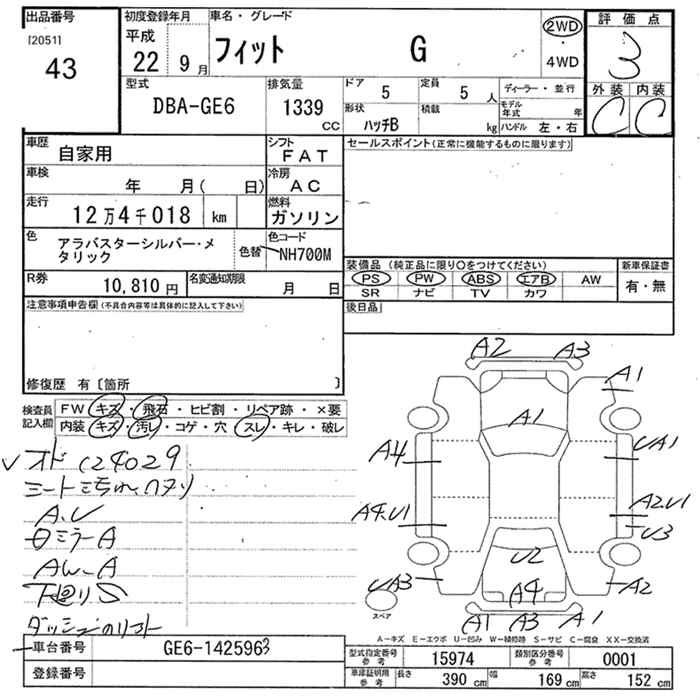 出品番号
[2051]
43
初度登録年月
平成
22 9月
車名・グレード
フィット G
2WD
・
4WD
評価点
3
外装 内装
C C
型式
DBA-GE6
排気量
1339
CC
ドア 5
定員 5 人
形状 ハッチB
積載 kg
ディーラー・並行
モデル年式 年
ハンドル 左・右
車歴 自家用
シフト FAT
車検 年 月( 日)
冷房 AC
走行 12万4千018 km
燃料 ガソリン
色 アラバスターシルバー・メタリック
色替
色コード NH700M
R券 10,810円
名変通知期限 月 日
セールスポイント(正常に機能するものに限ります)
装備品 (純正品に限り○をつけてください)
PS PW ABS エアB AW
SR ナビ TV カワ
新車保証書
有・無
後日品
注意事項申告欄(不具合内容等は具体的に記入して下さい)
修復歴 有〔箇所 〕
検査員記入欄
FW キズ・飛石・ヒビ割・リペア跡・×要
内装 キズ・汚レ・コゲ・穴・スレ・キレ・破レ
オド 124029
A.U
日ミラーA
AW-A
下廻りS
A2 A3
A1
A1
A4
UA1
A4.U1
A2.U1
U3
U2
UA3
A4
A2
A1 A3 A1
スペア
A－キズ E－エクボ U－凹み W－補修跡 S－サビ C－腐食 XX－交換済
車台番号 GE6-1425963
登録番号
型式指定番号 参考 15974
類別区分番号 参考 0001
車庫証明用 参考
長さ 390 cm
幅 169 cm
高さ 152 cm